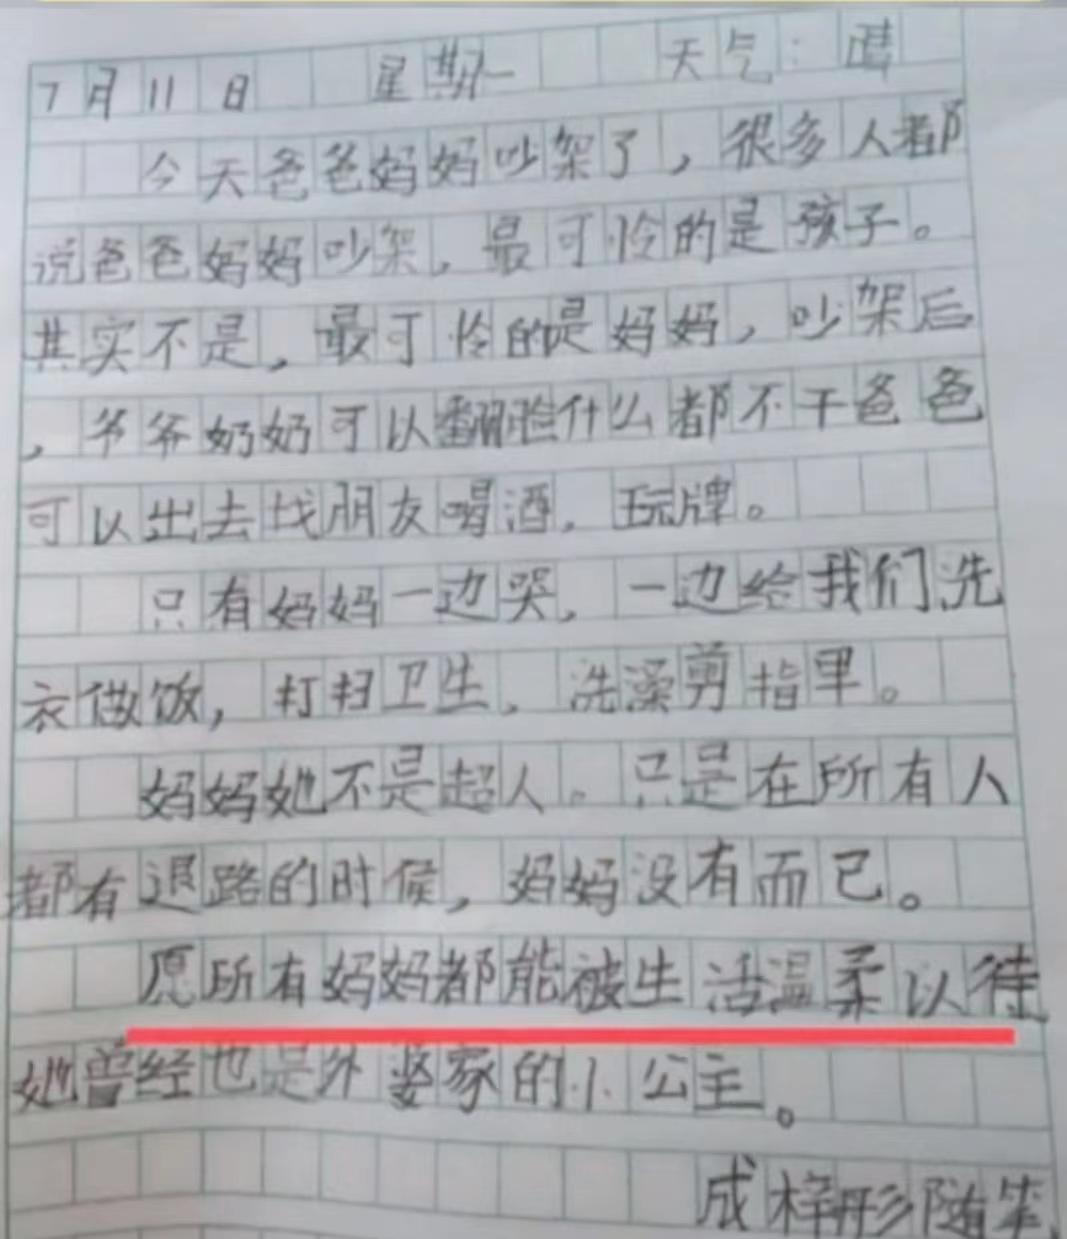 7月11日 星期一 天气:晴
今天爸爸妈妈吵架了,很多人都
说爸爸妈妈吵架,最可怜的是孩子。
其实不是,最可怜的是妈妈,吵架后
,爷爷奶奶可以翻脸什么都不干爸爸
可以出去找朋友喝酒,玩牌。
只有妈妈一边哭,一边给我们洗
衣做饭,打扫卫生,洗澡剪指甲。
妈妈她不是超人。只是在所有人
都有退路的时候,妈妈没有而已。
愿所有妈妈都能被生活温柔以待
她曾经也是外婆家的小公主。
成梓彤随笔